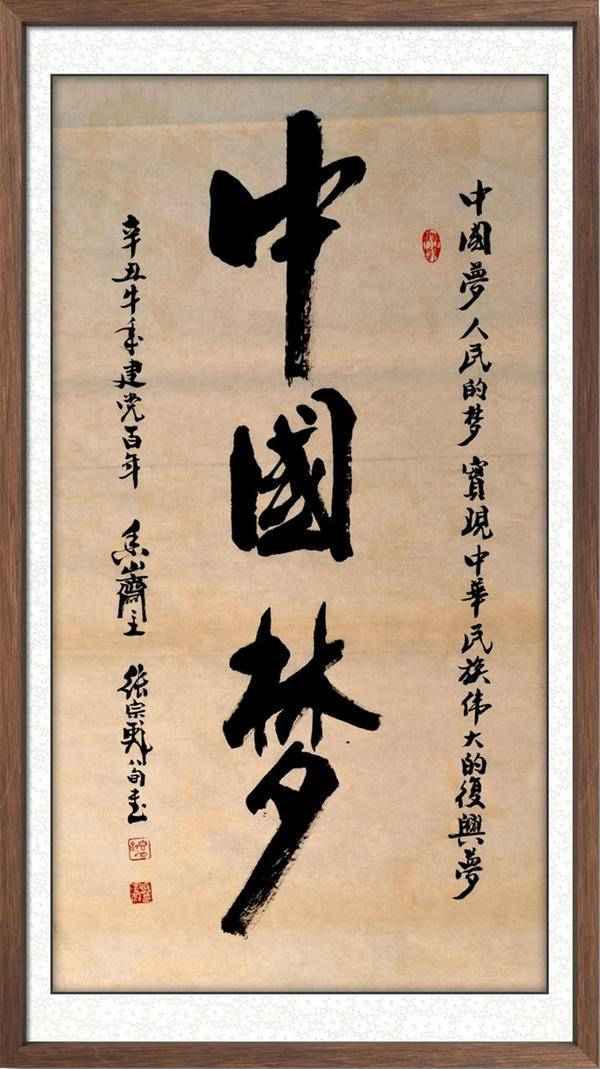 中國夢人民的梦 實現中華民族伟大的復興夢
中國梦
辛丑牛年建党百年 山齋主 张宗 八旬书